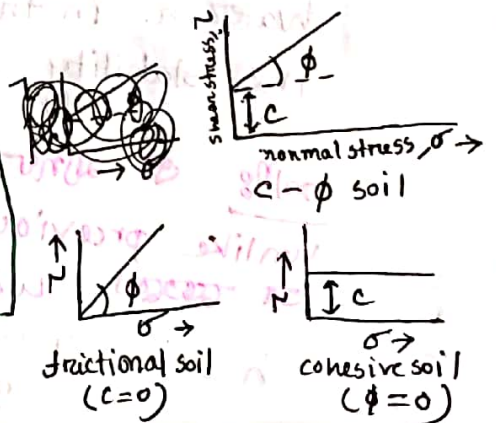 shear stress, τ
φ
c
normal stress, σ →
c - φ soil
τ →
φ
σ →
frictional soil
(c=0)
τ →
c
σ →
cohesive soil
(φ=0)